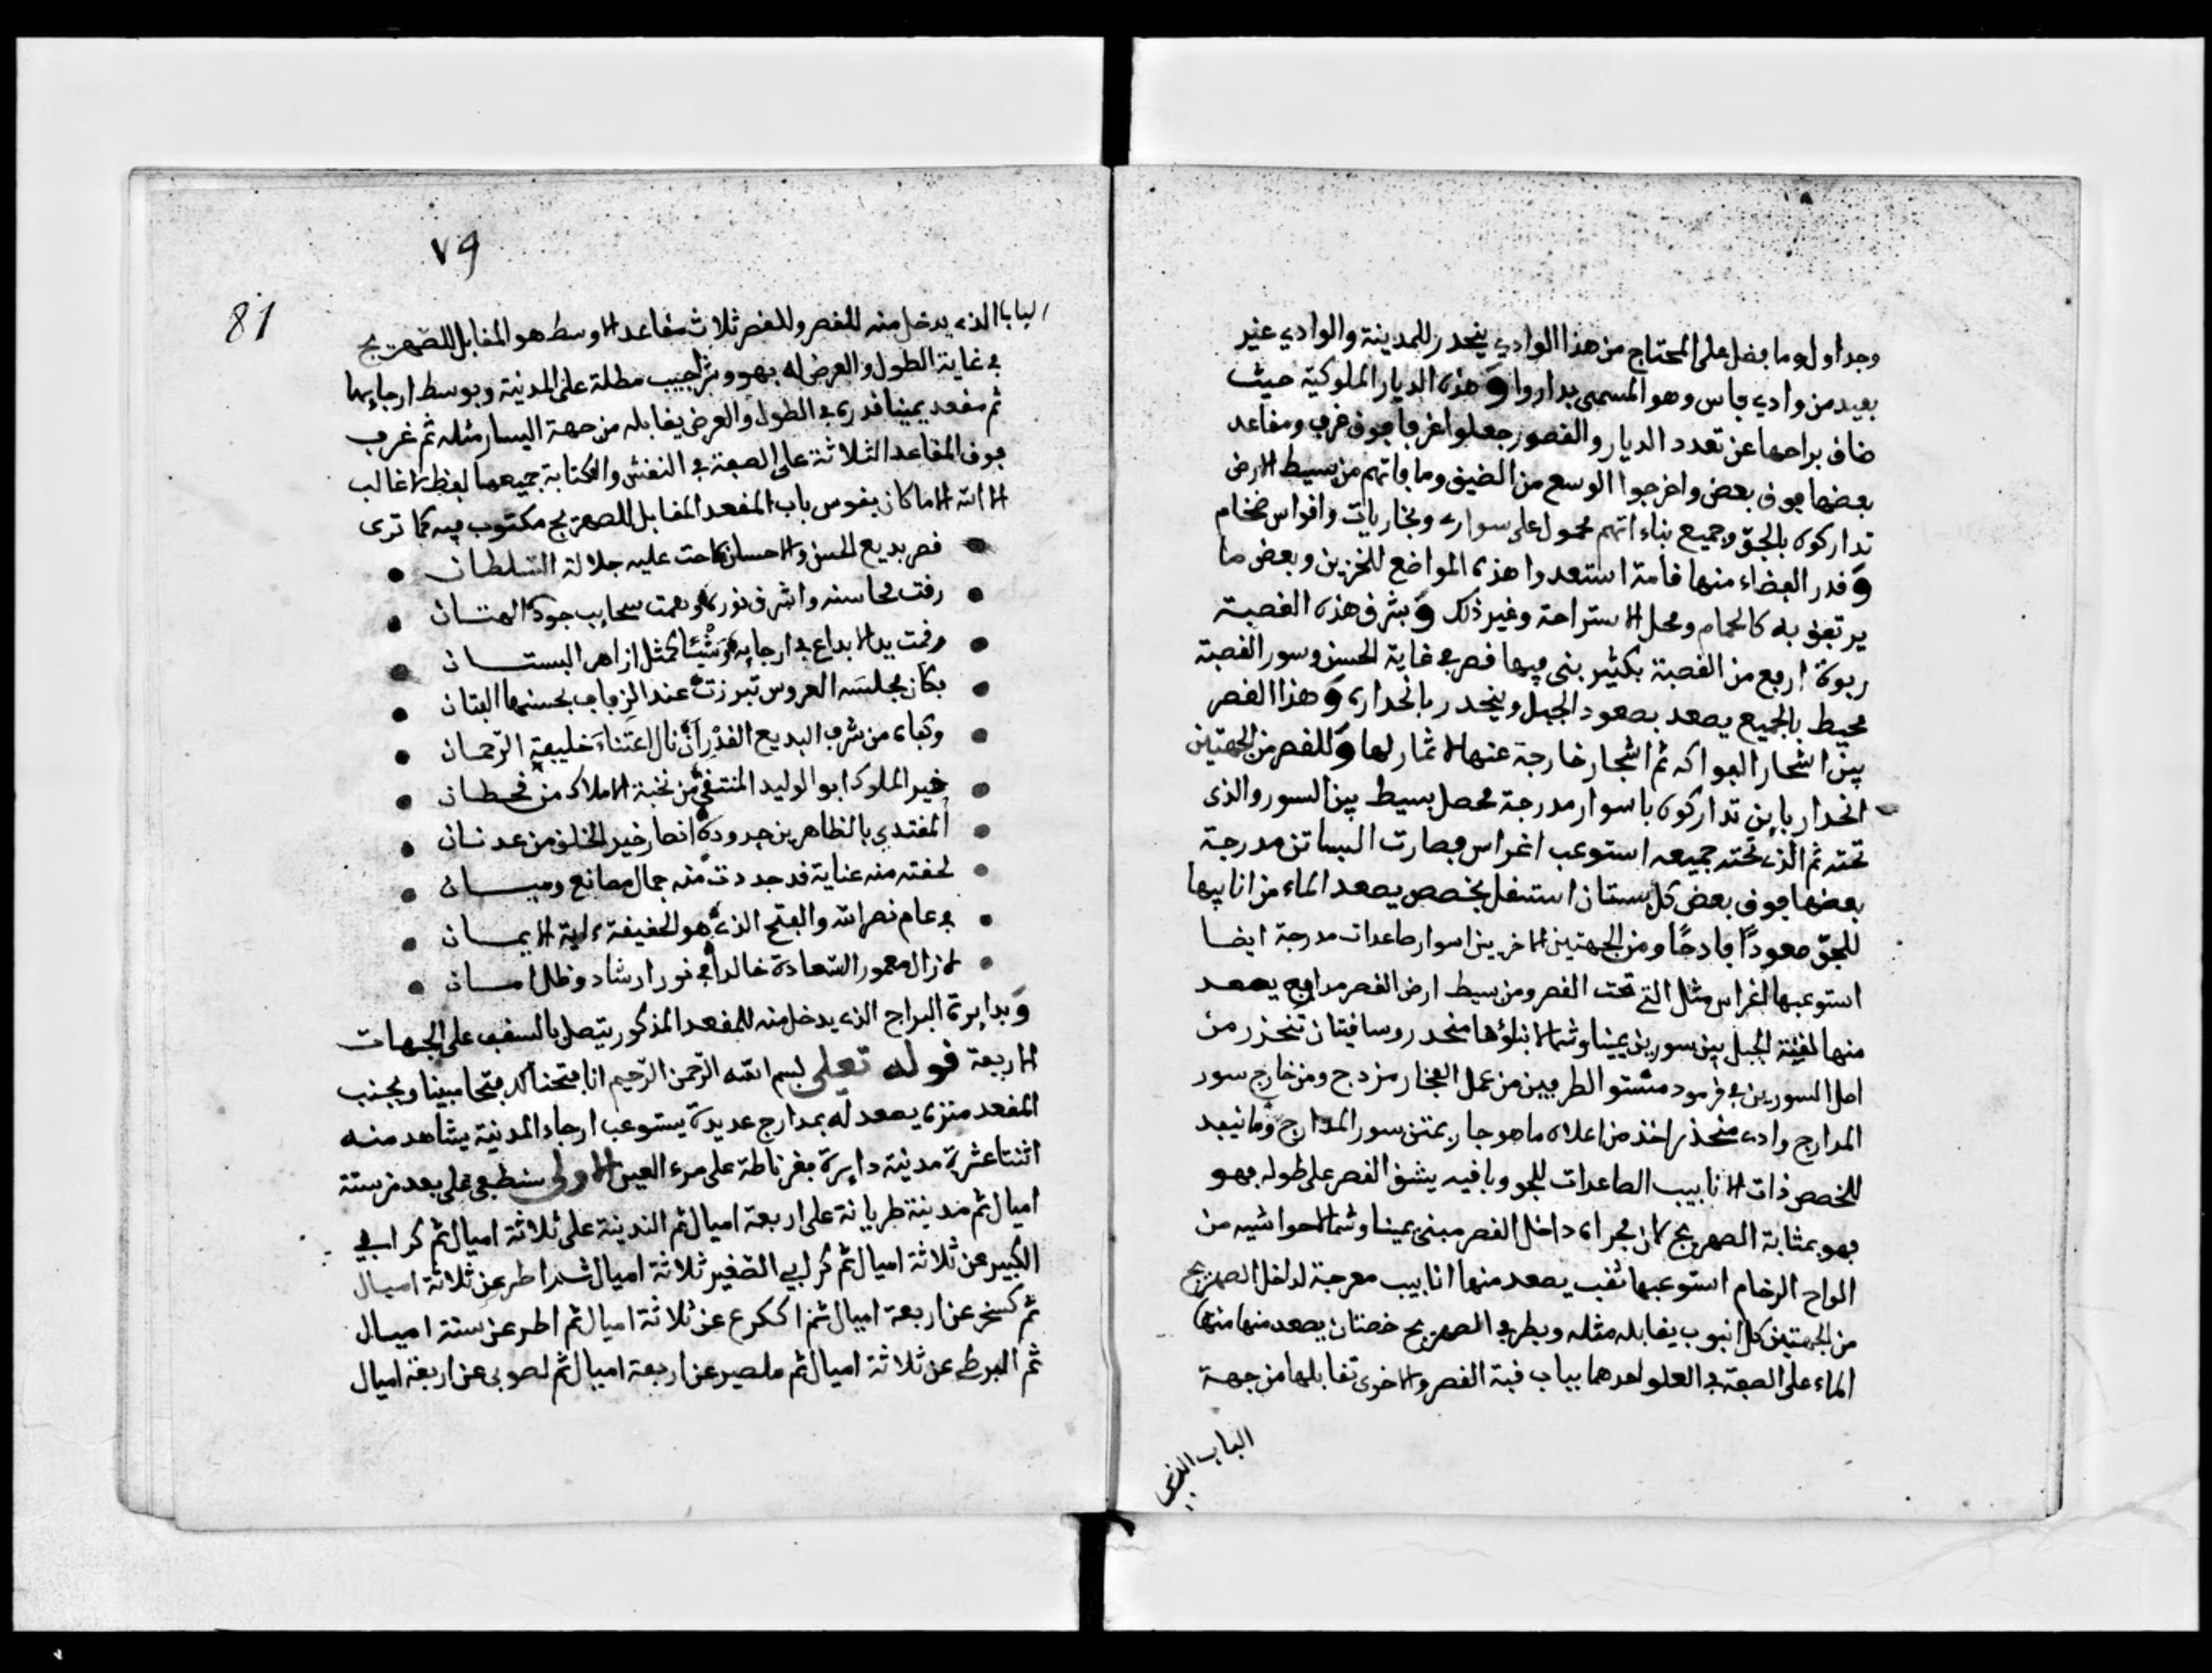 وجداول وما فضل على المحتاج من هذا الوادي ينحدر للمدينة والوادي غير
بعيد من وادي فاس وهو المسمى بداروا وهذه الديار الملوكية حيث
ضاق براحها عن تعدد الديار والقصور جعلوا غرفا فوق غرف ومقاعد
بعضها فوق بعض واخرجوا الوسع من الضيق وما فاتهم من بسيط الارض
تداركوه بالجوّ وجميع بناءاتهم محمول على سوارى وبخاريات واقواس ضخام
وقدر الفضاء منها قامة استعدوا هذه المواضع للخزين وبعض ما
يرتفق به كالحمام ومحل الاستراحة وغير ذلك وبشرق هذه القصبة
ربوة ارفع من القصبة بكثير بنى فيها قصر في غاية الحسن وسور القصبة
محيط بالجميع يصعد بصعود الجبل وينحدر بانحداره وهذا القصر
بين اشجار الفواكه ثم اشجار خارجة عنها لا ثمار لها وللقصر من الجهتين
انحدار باين تداركوه باسوار مدرجة محصل بسيط بين السور والذى
تحته ثم الذى تحته جميعه استوعب اغراس فصارت البساتن مدرجة
بعضها فوق بعض كل بستان استقل بخصص يصعد الماء من انابيبها
للجوّ صعودًا فادحًا ومن الجهتين الاخريين اسوار صاعدات مدرجة ايضا
استوعبها اغراس مثل التى تحت القصر ومن بسيط ارض القصر مدارج يصعد
منها لقنة الجبل بين سورين يمينا وشمالا ابتلؤها منحدر وساقيتان تنحذر من
اصل السورين في قرمود مشتو الطرفين من عمل الفخار مزدج ومن خارج سور
المدارج وادى منحذر اخذ من اعلاه ما هو جار بمتن سور المدارج وما نيعد
للخصص ذات الانابيب الصاعدات للجو وباقيه يشق القصر على طوله فهو
فهو بمثابة الصهريج كان مجراه داخل القصر مبنى يمينا وشمالا حواشيه من
الواح الرخام استوعبها ثقب يصعد منها انابيب معرجة لداخل الصهريج
من الجهتين كل انبوب يقابله مثله وبطرفى الصهريج خصتان يصعد منها منها
الماء على الصفة في العلو احدهما بباب قبة القصر والاخرى تقابلها من جهة
الباب الذى
٧٩
81
الباب الذى يدخل منه للقصر وللقصر ثلاث مقاعد الاوسط هو المقابل للصهريج
في غاية الطول والعرض له بهو وشراجيب مطلة على المدينة وبوسط ارجايها
ثم مقعد يمينا قدره في الطول والعرض يقابله من جهة اليسار مثله ثم غرف
فوق المقاعد الثلاثة على الصفة في النقش والكتابة جميعها لفظ لا غالب
الا الله الا ما كان بقوس باب المقعد المقابل للصهريج مكتوب فيه كما ترى
قصر بديع الحسن والاحسان لاحت عليه جلالة السلطان
رقت محاسنه واشرق نوره وهمت سحايب جوده الهتان
رقمت يد الابداع في ارجايه وشيًا كمثل ازاهر البستان
فكأن مجلسه العروس تبرزت عند الزفاف بحسنها الفتان
وكفاه من شرف البديع القدر أن نال اعتناء خليفة الرحمان
خير الملوك ابو الوليد المنتقى من نخبة الاملاك من قحطان
المقتدى بالطاهرين جدوده انصار خير الخلق من عدنان
لحقته منه عناية قد جددت منه جمال مصانع ومبان
في عام نصر الله والفتح الذى هو الحقيقة ءاية الايمان
لازال معمور السعادة خالدا في نور ارشاد وظل امان
وبدايرة البراج الذى يدخل منه للمقعد المذكور يتصل بالسقف على الجهات
الاربعة قوله تعلى بسم الله الرحمن الرحيم انا فتحنا لك فتحا مبينا وبجنب
المقعد منزه يصعد له بمدارج عديدة يستوعب ارجاء المدينة يشاهد منه
اثنتا عشرة مدينة دايرة بغرناطة على مرء العين الاولى سنطفى على بعد من ستة
اميال ثم مدينة طريانة على اربعة اميال ثم الندينة على ثلاثة اميال ثم كرابي
الكبير عن ثلاثة اميال ثم كرابي الصغير ثلاثة اميال شد اطر عن ثلاثة اميال
ثم كسخر عن اربعة اميال ثم اككرع عن ثلاثة اميال ثم اطر عن ستة اميال
ثم البرط عن ثلاثة اميال ثم ملصير عن اربعة اميال ثم لصوبى عن اربعة اميال